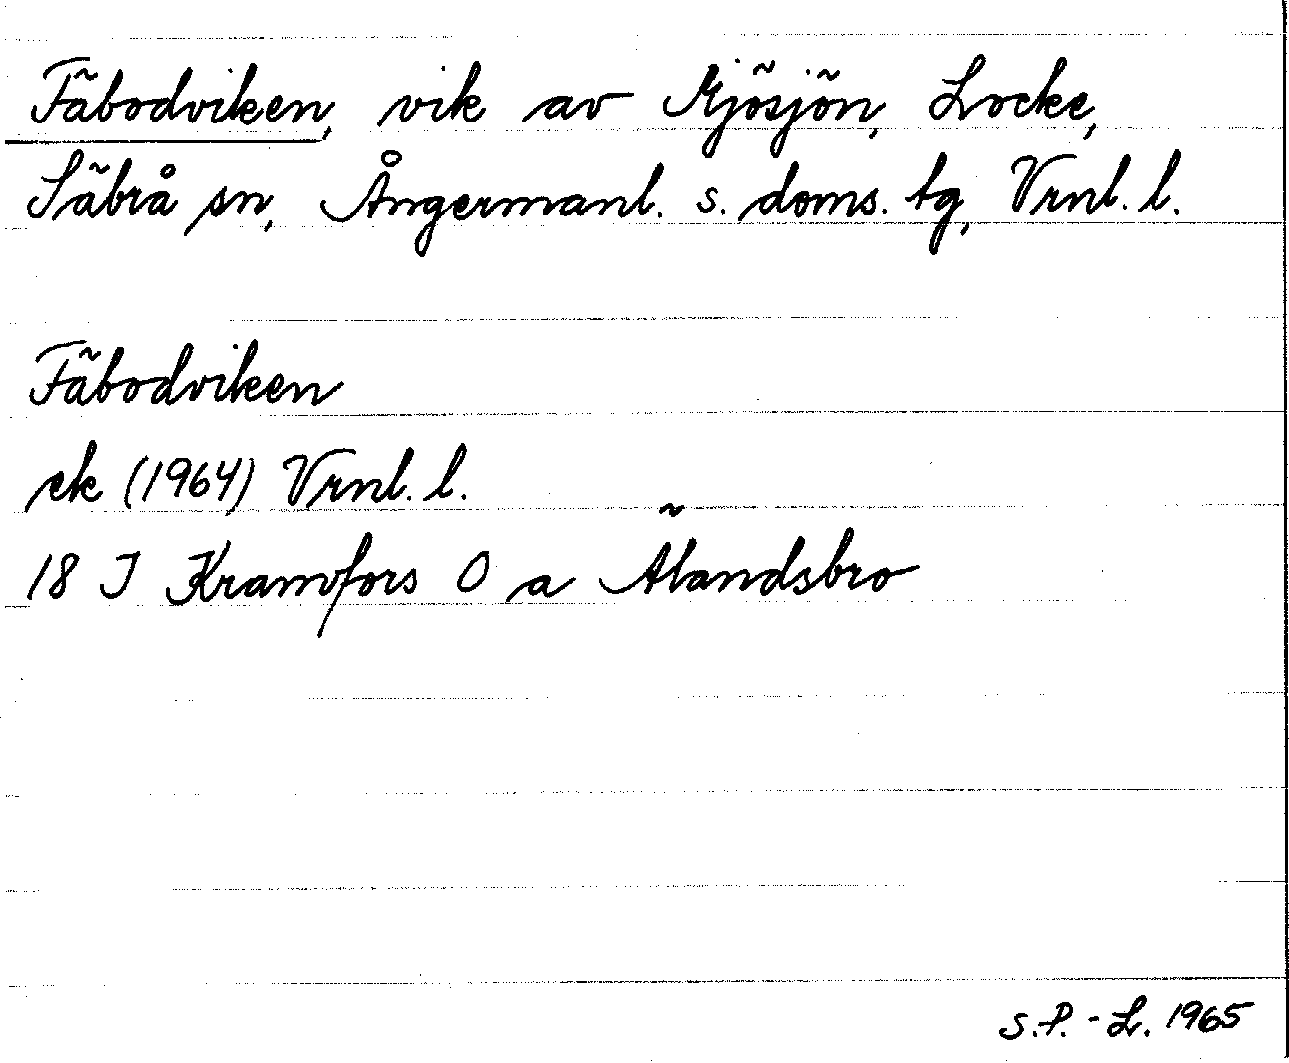 Fäbodviken, vik av Mjösjön, Locke,
Säbrå sn, Ångermanl. s. doms. tg, Vrnl. l.
Fäbodviken
ek (1964) Vrnl. l.
18 J Kramfors O a Älandsbro
S.P.-L. 1965